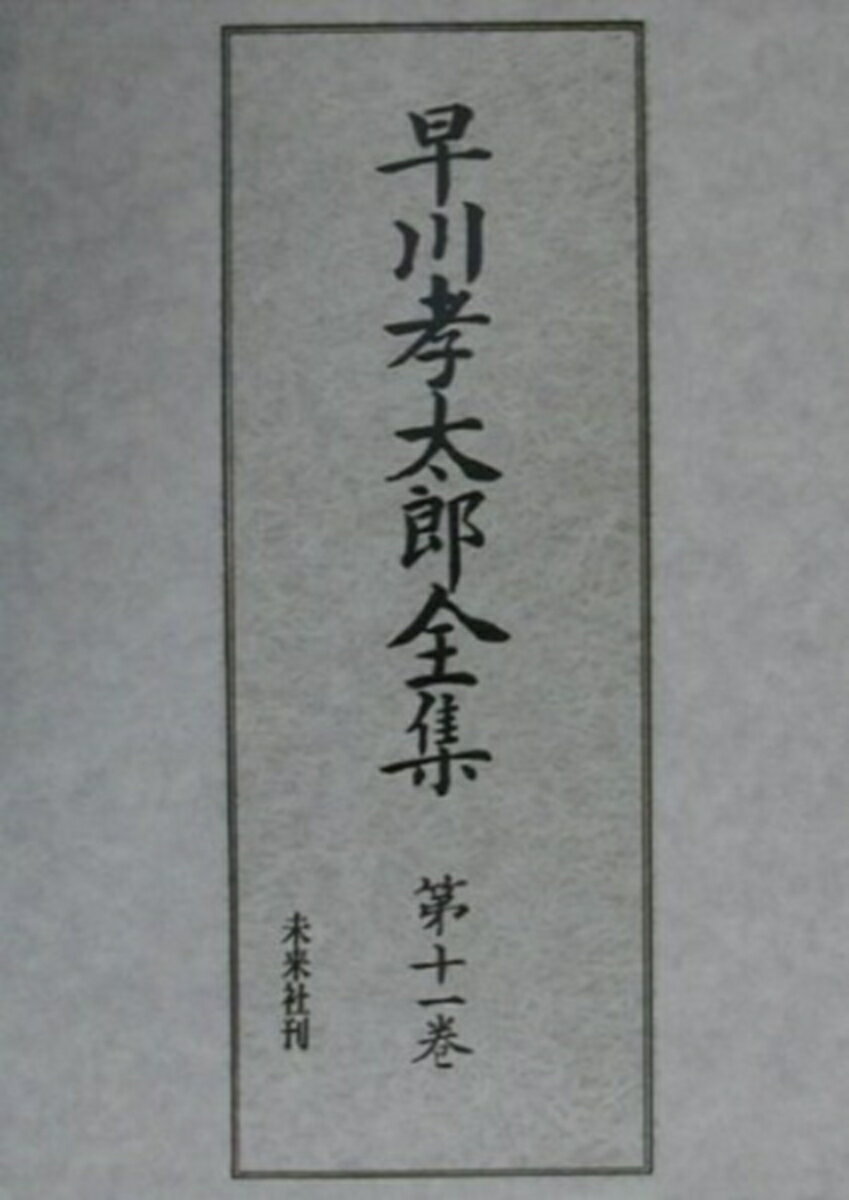 早川孝太郎全集 第十一巻
未来社刊